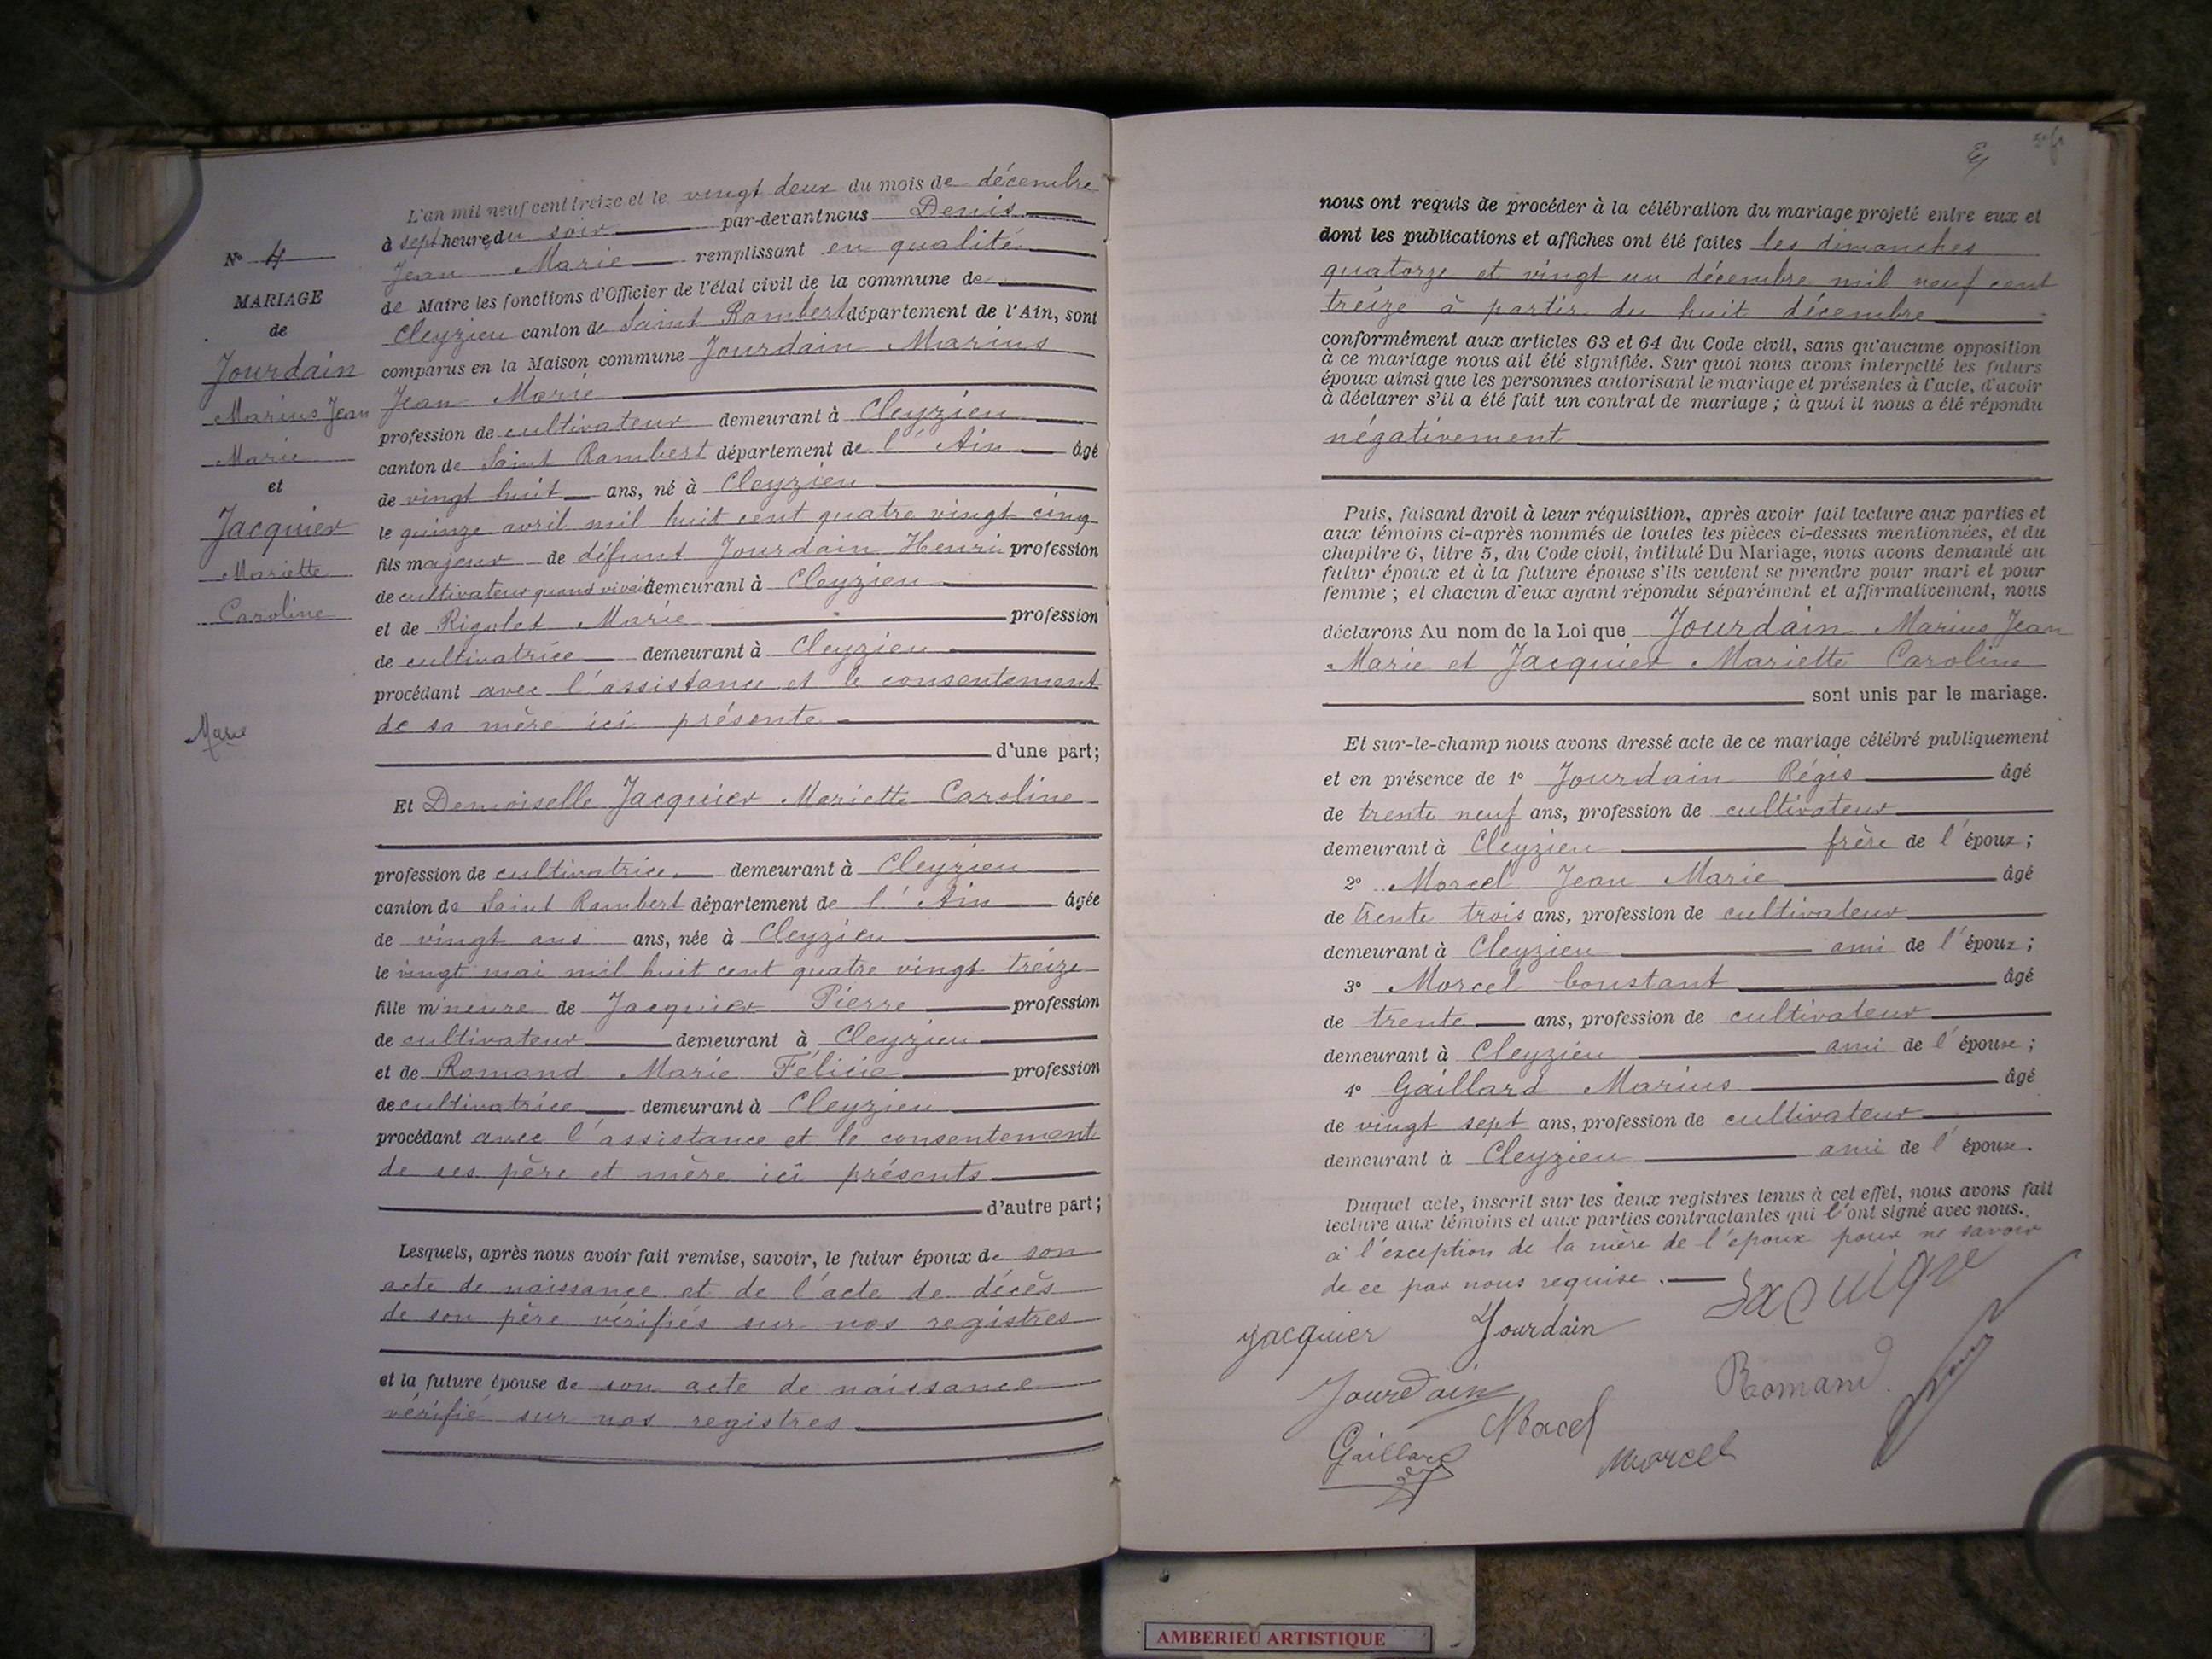 N° 4
MARIAGE
de
Jourdain
Marius Jean
Marie
et
Jacquier
Mariette
Caroline
Marie
L'an mil neuf cent treize et le vingt deux du mois de décembre
à sept heures du soir par-devant nous Denis
Jean Marie remplissant en qualité
de Maire les fonctions d'Officier de l'état civil de la commune de
Cleyzieu canton de Saint Rambert département de l'Ain, sont
comparus en la Maison commune Jourdain Marius
Jean Marie
profession de cultivateur demeurant à Cleyzieu
canton de Saint Rambert département de l'Ain âgé
de vingt huit ans, né à Cleyzieu
le quinze avril mil huit cent quatre vingt cinq
fils majeur de défunt Jourdain Henri profession
de cultivateur quand vivait demeurant à Cleyzieu
et de Rigolet Marie profession
de cultivatrice demeurant à Cleyzieu
procédant avec l'assistance et le consentement
de sa mère ici présente
d'une part;
Et Demoiselle Jacquier Mariette Caroline
profession de cultivatrice demeurant à Cleyzieu
canton de Saint Rambert département de l'Ain âgée
de vingt ans ans, née à Cleyzieu
le vingt mai mil huit cent quatre vingt treize
fille mineure de Jacquier Pierre profession
de cultivateur demeurant à Cleyzieu
et de Romand Marie Félicie profession
de cultivatrice demeurant à Cleyzieu
procédant avec l'assistance et le consentement
de ses père et mère ici présents
d'autre part;
Lesquels, après nous avoir fait remise, savoir, le futur époux de son
acte de naissance et de l'acte de décès
de son père vérifiés sur nos registres
et la future épouse de son acte de naissance
vérifié sur nos registres
nous ont requis de procéder à la célébration du mariage projeté entre eux et
dont les publications et affiches ont été faites les dimanches
quatorze et vingt un décembre mil neuf cent
treize à partir du huit décembre
conformément aux articles 63 et 64 du Code civil, sans qu'aucune opposition
à ce mariage nous ait été signifiée. Sur quoi nous avons interpellé les futurs
époux ainsi que les personnes autorisant le mariage et présentes à l'acte, d'avoir
à déclarer s'il a été fait un contrat de mariage ; à quoi il nous a été répondu
négativement
Puis, faisant droit à leur réquisition, après avoir fait lecture aux parties et
aux témoins ci-après nommés de toutes les pièces ci-dessus mentionnées, et du
chapitre 6, titre 5, du Code civil, intitulé Du Mariage, nous avons demandé au
futur époux et à la future épouse s'ils veulent se prendre pour mari et pour
femme ; et chacun d'eux ayant répondu séparément et affirmativement, nous
déclarons Au nom de la Loi que Jourdain Marius Jean
Marie et Jacquier Mariette Caroline
sont unis par le mariage.
Et sur-le-champ nous avons dressé acte de ce mariage célébré publiquement
et en présence de 1° Jourdain Régis âgé
de trente neuf ans, profession de cultivateur
demeurant à Cleyzieu frère de l'époux ;
2° Morcel Jean Marie âgé
de trente trois ans, profession de cultivateur
demeurant à Cleyzieu ami de l'époux ;
3° Morcel Constant âgé
de trente ans, profession de cultivateur
demeurant à Cleyzieu ami de l'épouse ;
4° Gaillard Marius âgé
de vingt sept ans, profession de cultivateur
demeurant à Cleyzieu ami de l'épouse.
Duquel acte, inscrit sur les deux registres tenus à cet effet, nous avons fait
lecture aux témoins et aux parties contractantes qui l'ont signé avec nous.
à l'exception de la mère de l'époux pour ne savoir
de ce par nous requise.
Jacquier Jourdain
Jourdain Morcel Romand
Gaillard Morcel
AMBERIEU ARTISTIQUE